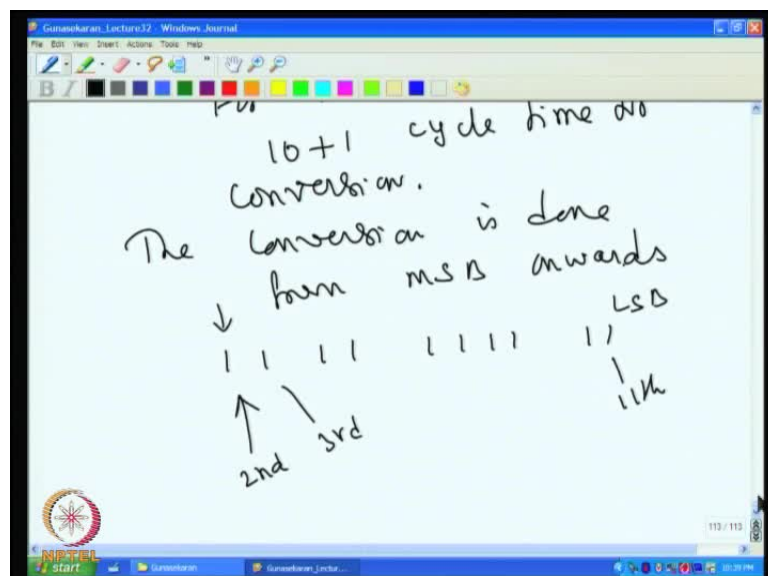 Gunasekaran_Lecture32 - Windows Journal
File Edit View Insert Actions Tools Help
B I
10+1 cycle time
conversion.
The conversion is done
from MSB onwards
LSB
2nd 3rd 11th
113 / 113
NPTEL
start Gunasekaran Gunasekaran_Lectur... 10:39 PM